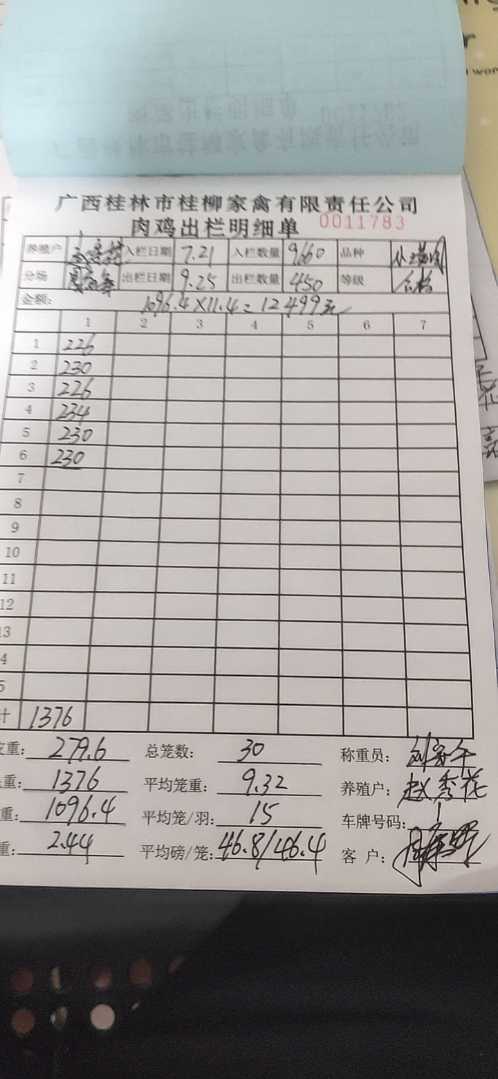 广西桂林市桂柳家禽有限责任公司
肉鸡出栏明细单 0011783
养殖户 入栏日期 7.21 入栏数量 9660 品种
分场 出栏日期 9.25 出栏数量 450 等级 合格
金额: 1096.4×11.4=12499元
1 2 3 4 5 6 7
1 226
2 230
3 226
4 234
5 230
6 230
7
8
9
10
11
12
13
4
5
计 1376
皮重: 279.6 总笼数: 30 称重员:
重: 1376 平均笼重: 9.32 养殖户: 赵秀花
重: 1096.4 平均笼/羽: 15 车牌号码:
重: 2.44 平均磅/笼: 46.8/46.4 客 户: